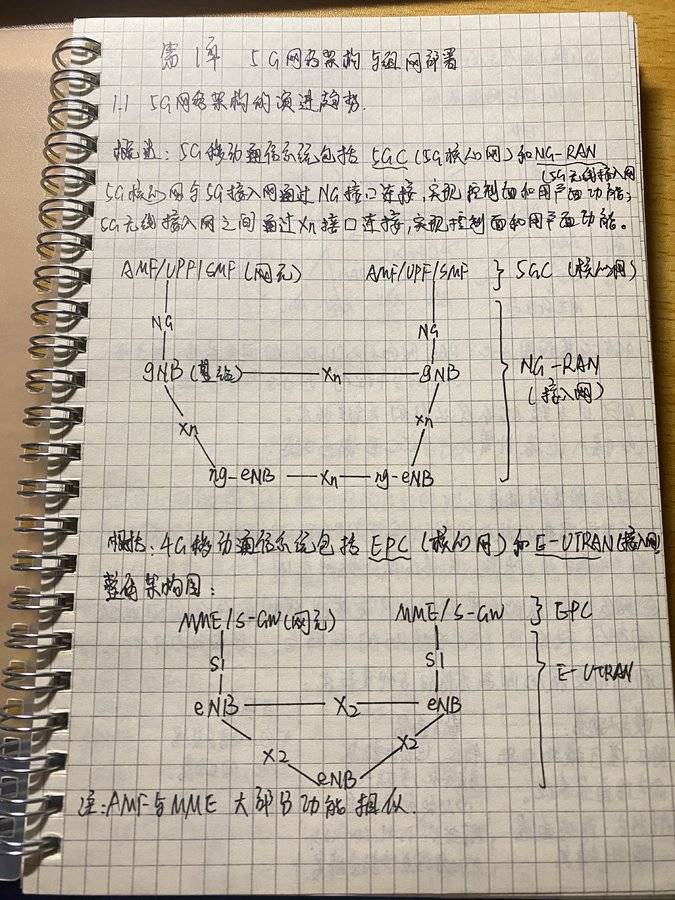 第1章 5G网络架构与组网部署
1.1 5G网络架构的演进趋势.
概述: 5G移动通信系统包括 5GC (5G核心网) 和NG-RAN
(5G无线接入网
5G核心网与5G接入网通过NG接口连接,实现控制面和用户面功能;
5G无线接入网之间通过Xn接口连接,实现控制面和用户面功能。
AMF/UPF/SMF (网元) AMF/UPF/SMF } 5GC (核心网)
NG NG
gNB (基站) Xn gNB NG-RAN
(接入网)
Xn Xn
ng-eNB Xn ng-eNB
: 4G移动通信系统包括 EPC (核心网) 和 E-UTRAN (接入网)
整体架构图:
MME/S-GW (网元) MME/S-GW } EPC
S1 S1 E-UTRAN
eNB X2 eNB
X2 X2
eNB
注:AMF与MME 大部分功能相似.